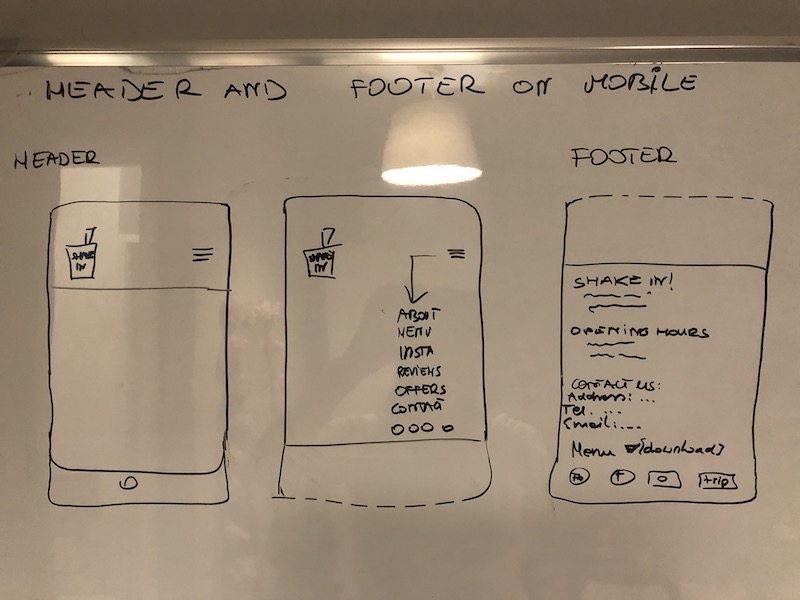 HEADER AND FOOTER ON MOBILE
HEADER
SHAKE
IN
SHAKE
IN
ABOUT
MENU
INSTA
REVIEWS
OFFERS
CONTACT
FOOTER
SHAKE IN!
OPENING HOURS
CONTACT US:
Address: ...
Tel. ...
Email:...
Menu (download)
F
trip